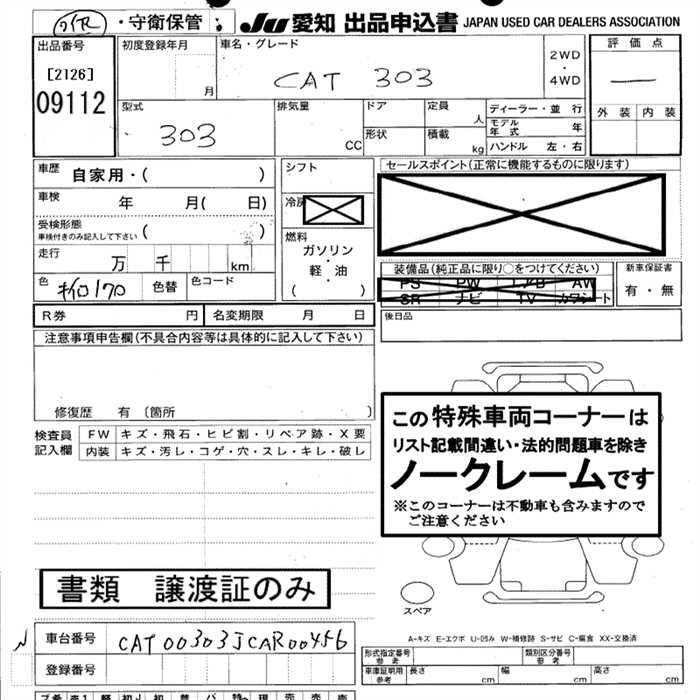 ・守衛保管
JU 愛知 出品申込書 JAPAN USED CAR DEALERS ASSOCIATION
出品番号 初度登録年月 車名・グレード 評価点
[2126] 2WD
・
09112 月 CAT 303 4WD ―
型式 排気量 ドア 定員 ディーラー・並 行 外装 内装
303 人 モデル年式 年
CC 形状 積載 kg ハンドル 左・右
車歴 自家用・( ) シフト セールスポイント(正常に機能するものに限ります)
車検 年 月( 日) 冷房
受検形態 ( )
車検付きのみ記入して下さい
燃料
走行 万 千 km ガソリン
軽・油
( )
装備品(純正品に限り○をつけてください) 新車保証書
PS PW エアB AW 有・無
SR ナビ TV カワシート
色 170 色替 色コード
後日品
R券 円 名変期限 月 日
注意事項申告欄(不具合内容等は具体的に記入して下さい)
修復歴 有 〔箇所 〕
検査員 FW キズ・飛石・ヒビ割・リペア跡・X要
記入欄 内装 キズ・汚レ・コゲ・穴・スレ・キレ・破レ
この特殊車両コーナーは
リスト記載間違い・法的問題車を除き
ノークレームです
※このコーナーは不動車も含みますので
ご注意ください
書類 譲渡証のみ
スペア
A-キズ E-エクボ U-凹み W-補修跡 S-サビ C-腐食 XX-交換済
車台番号 CAT00303JCAR00456
登録番号
形式指定番号 参考 類別区分番号 参考
車庫証明用 参考 長さ cm 幅 cm 高さ cm